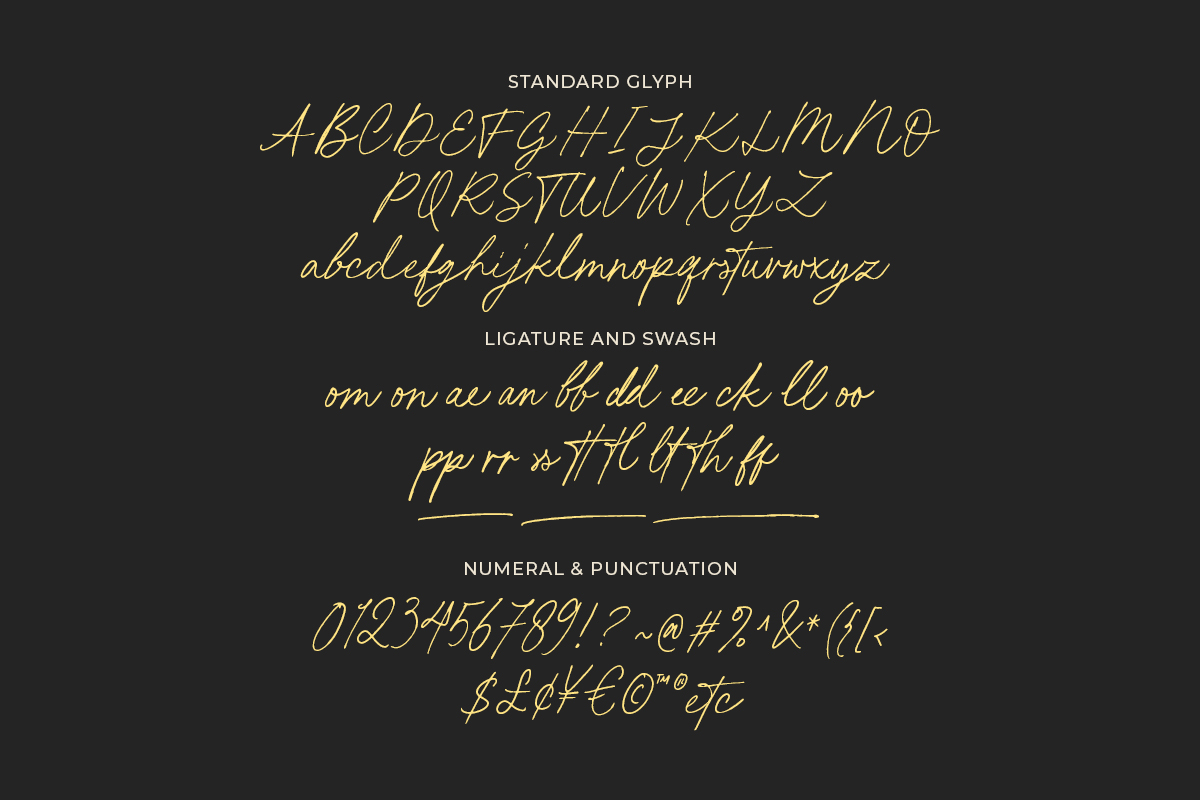 STANDARD GLYPH
ABCDEFGHIJKLMNO
PQRSTUVWXYZ
abcdefghijklmnopqrstuvwxyz
LIGATURE AND SWASH
om on ae an bb dd ee ck ll oo
pp rr ss tt tl lt th ff
NUMERAL & PUNCTUATION
0123456789!?~@#%^&*({[<
$£¢¥€©™®etc